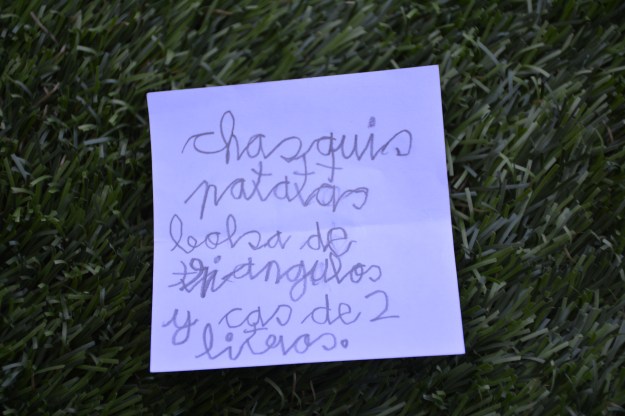 chasquis
patatas
bolsa de
triangulos
y cas de 2
literos.